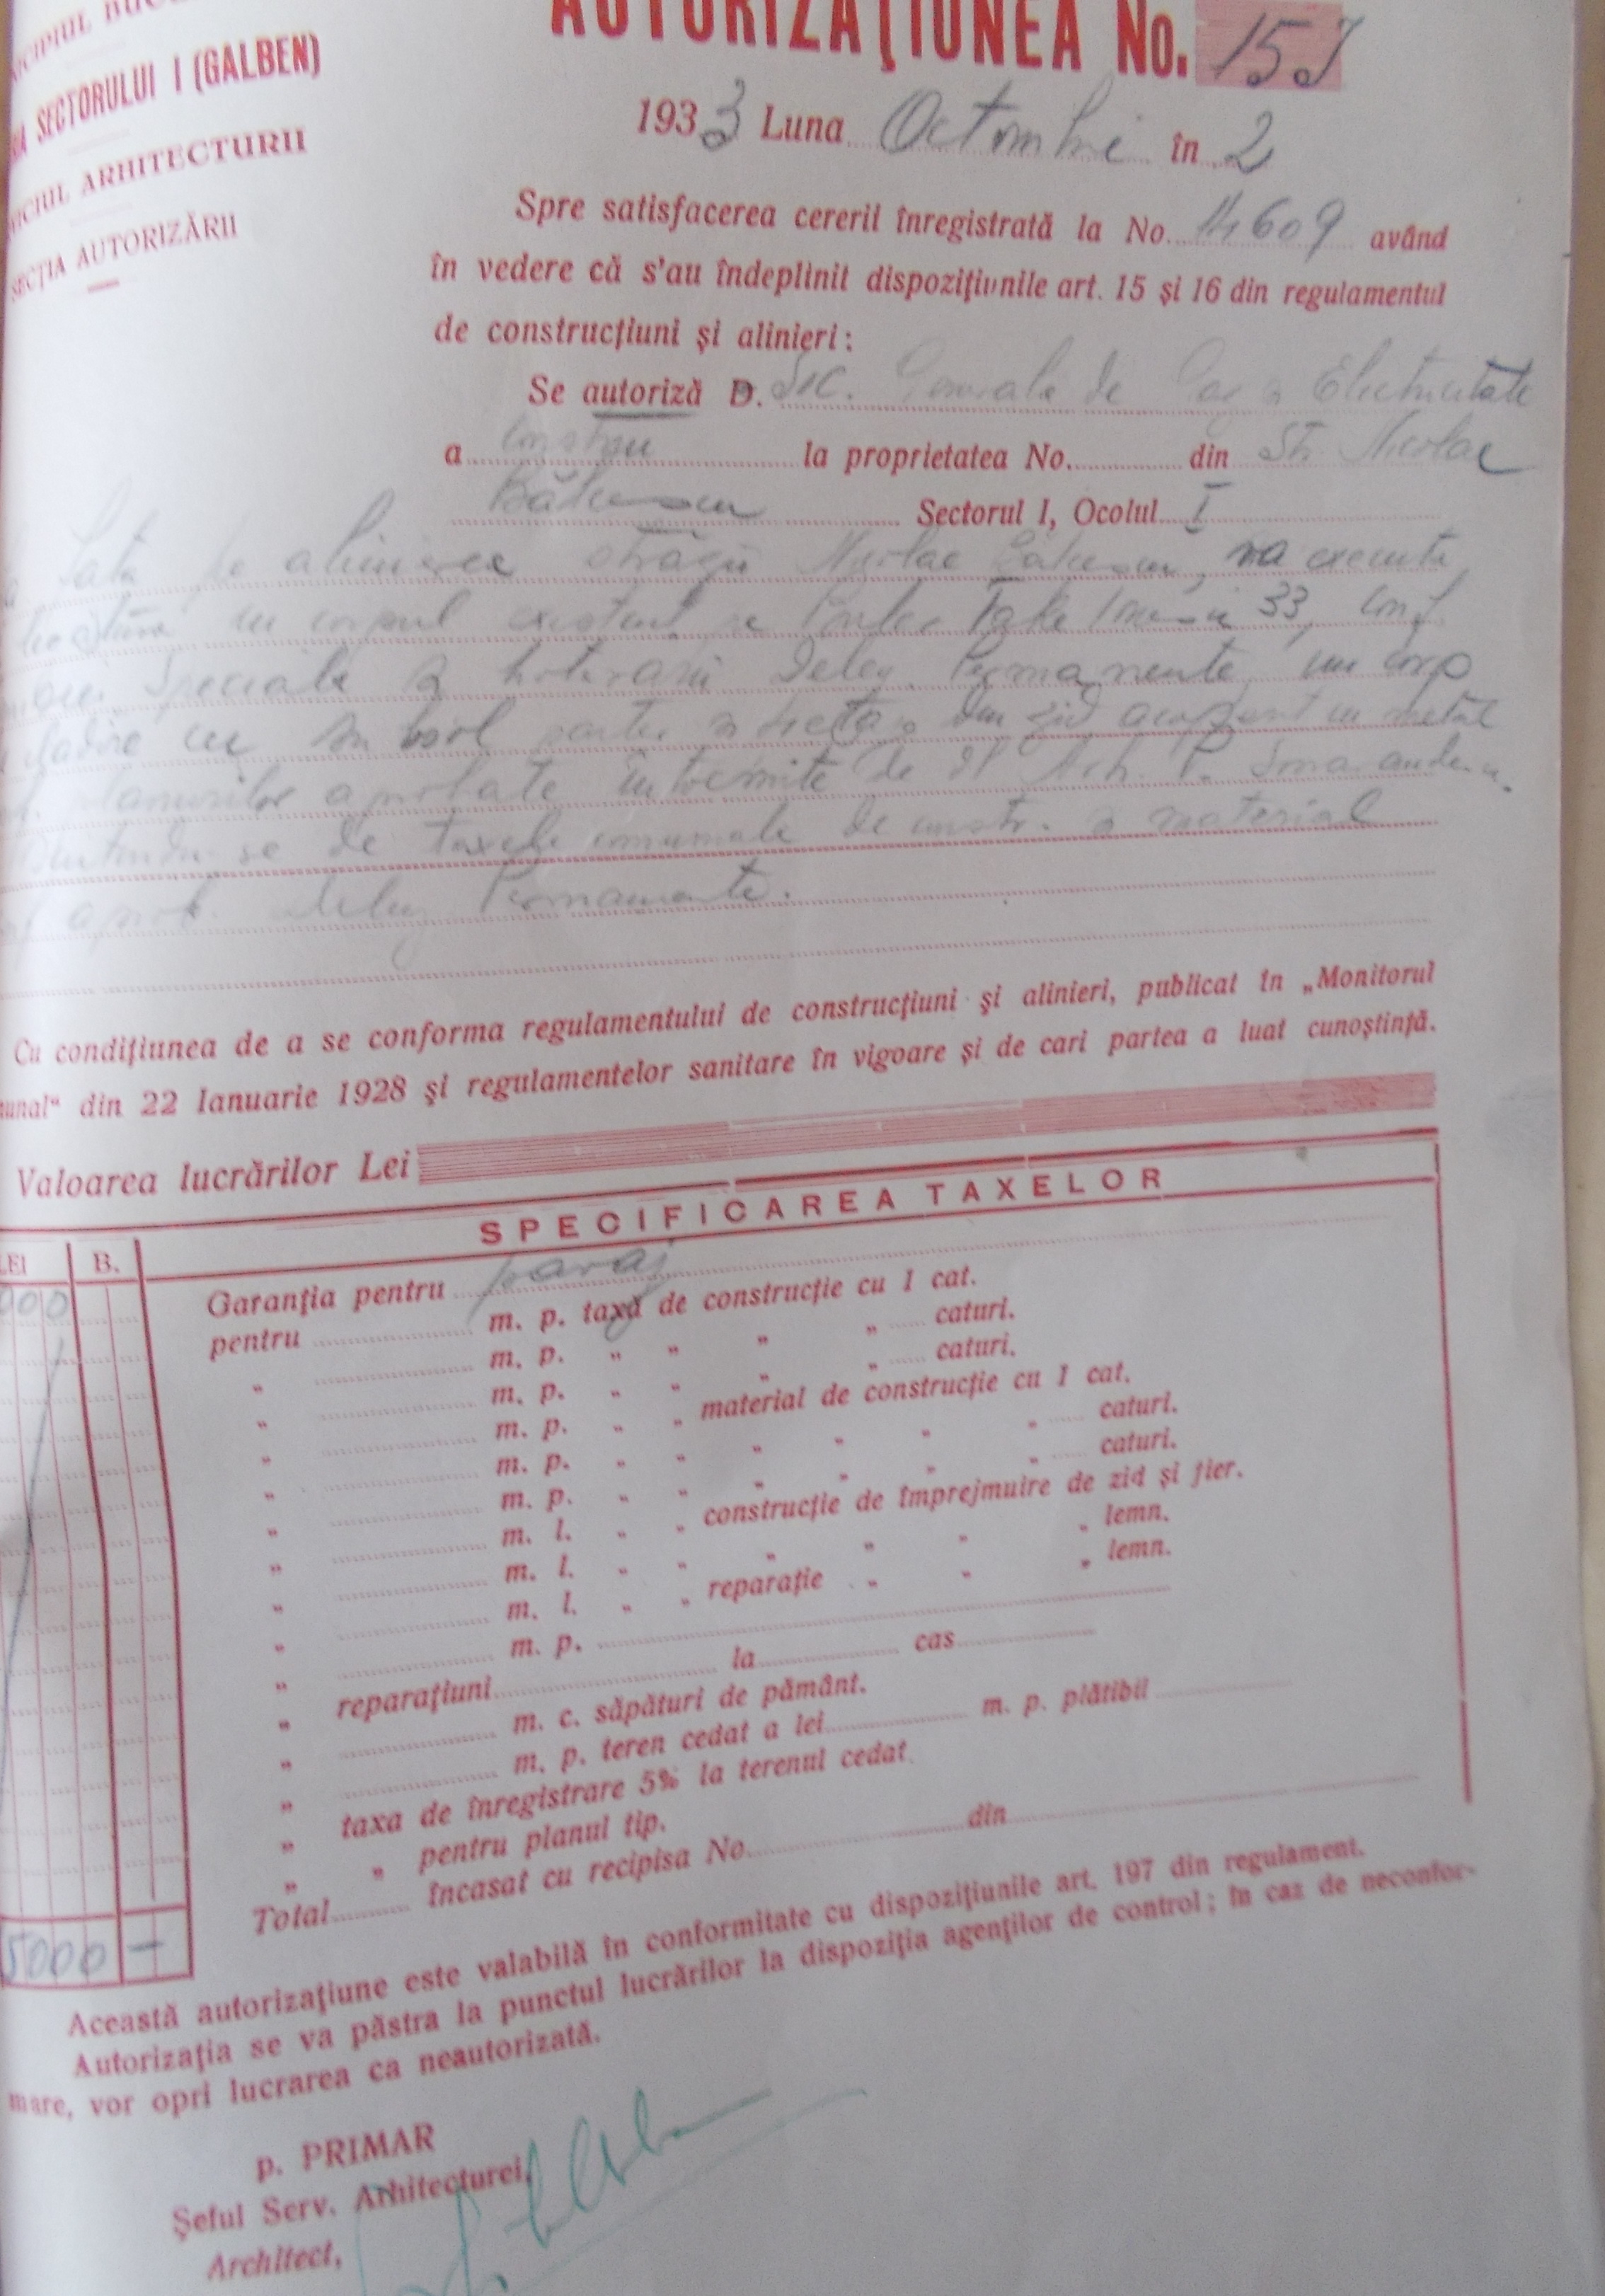 AUTORIZAŢIUNEA No. 15
SECTORULUI I (GALBEN)
ARHITECTURII
SECŢIA AUTORIZĂRII
1933 Luna Octombrie în 2
Spre satisfacerea cererii înregistrată la No. 14609 având
în vedere că s'au îndeplinit dispoziţiunile art. 15 şi 16 din regulamentul
de construcţiuni şi alinieri:
Se autoriză D. Soc. Generala de Gaz si Electricitate
a construi la proprietatea No. din Str. Nicolae
Bălcescu Sectorul I, Ocolul I
fata de alinierea străzii Nicolae Balcescu, va executa
cu corpul existent Take Ionescu 33, conf.
speciale si hotararii Deleg. Permanente, un corp
cu sub sol parter si din zid acoperit cu metal
planurilor aprobate întocmite de Dl Arh. P. Smarandescu.
se de taxele comunale de constr. si material
aprob. Deleg Permanente.
Cu condiţiunea de a se conforma regulamentului de construcţiuni şi alinieri, publicat în „Monitorul
unal" din 22 Ianuarie 1928 şi regulamentelor sanitare în vigoare şi de cari partea a luat cunoştinţă.
Valoarea lucrărilor Lei
SPECIFICAREA TAXELOR
LEI B.
000 Garanţia pentru pavaj
pentru m. p. taxă de construcţie cu 1 cat.
„ m. p. „ „ „ „ caturi.
„ m. p. „ „ „ „ caturi.
„ m. p. „ „ material de construcţie cu 1 cat.
„ m. p. „ „ „ „ „ „ caturi.
„ m. p. „ „ „ „ „ „ caturi.
„ m. l. „ „ construcţie de împrejmuire de zid şi fier.
„ m. l. „ „ „ „ „ „ lemn.
„ m. l. „ „ reparaţie „ „ „ lemn.
„ m. p.
„ reparaţiuni la cas
„ m. c. săpături de pământ.
„ m. p. teren cedat a lei m. p. plătibil
„ taxa de înregistrare 5% la terenul cedat
„ „ pentru planul tip.
Total încasat cu recipisa No. din
5000 —
Această autorizaţiune este valabilă în conformitate cu dispoziţiunile art. 197 din regulament.
Autorizaţia se va păstra la punctul lucrărilor la dispoziţia agenţilor de control; în caz de neconfor-
mare, vor opri lucrarea ca neautorizată.
p. PRIMAR
Şeful Serv. Arhitecturei,
Architect,